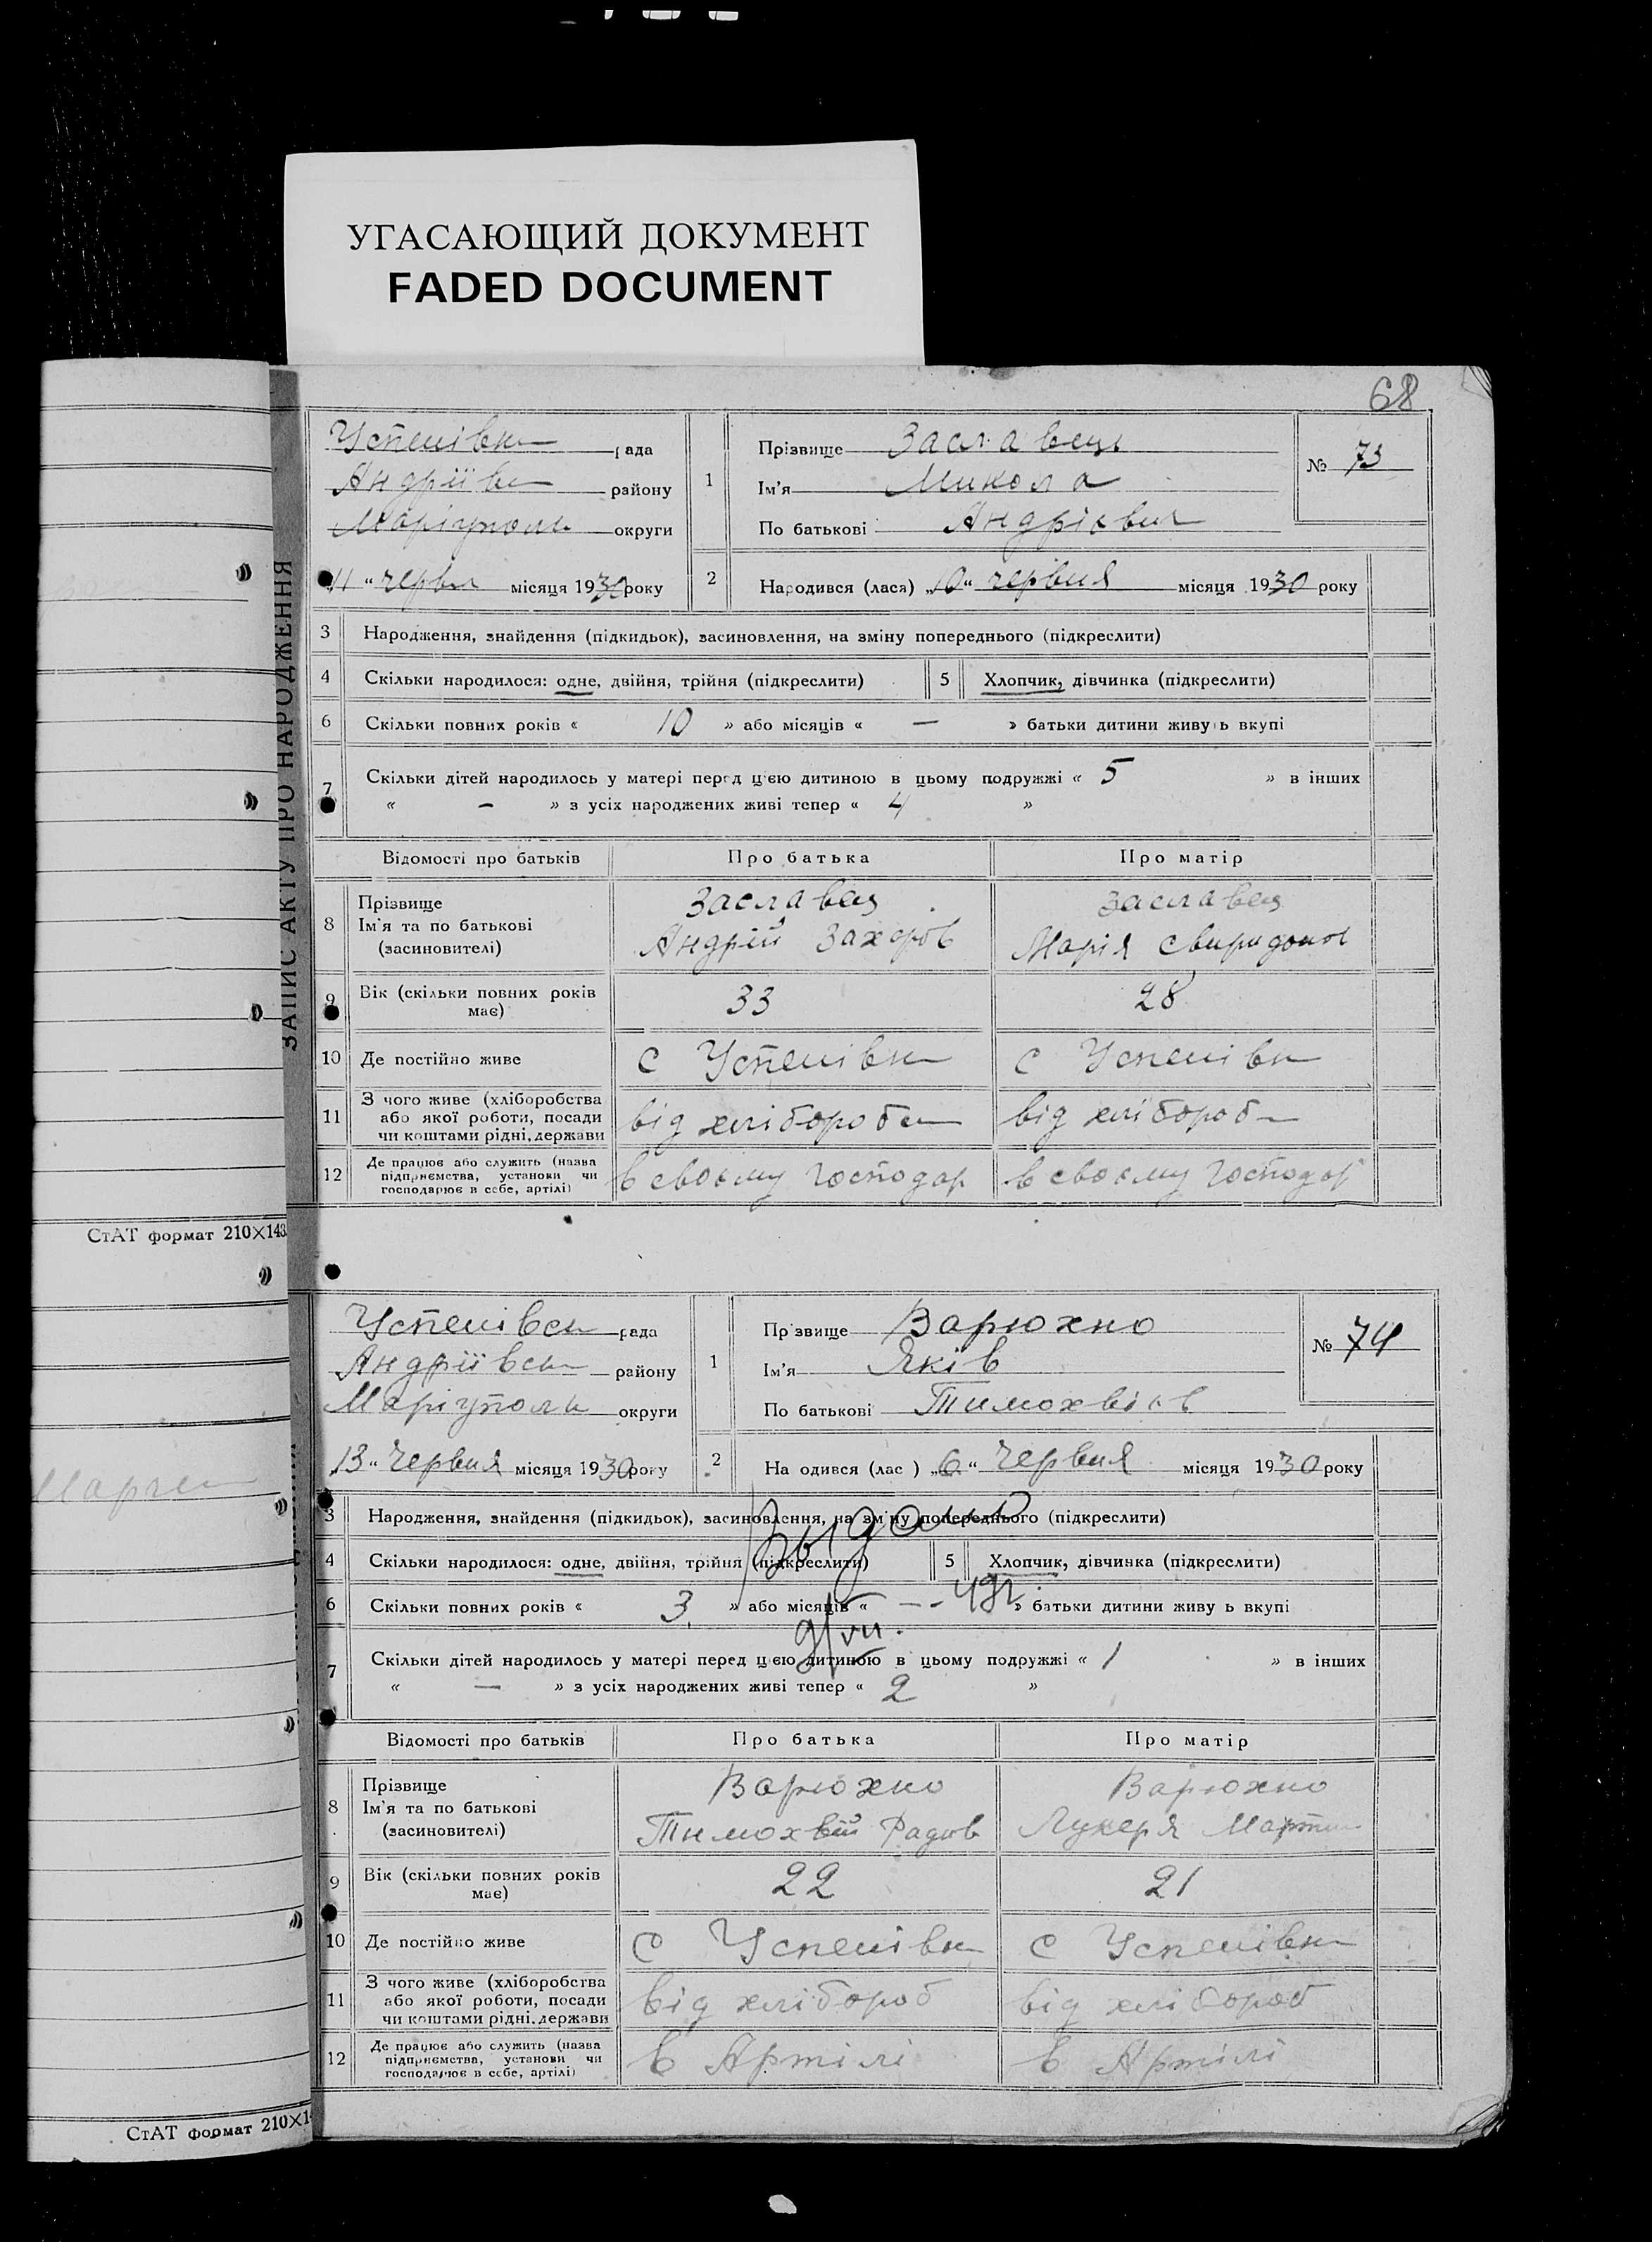 УГАСАЮЩИЙ ДОКУМЕНТ
FADED DOCUMENT
68
ЗАПИС АКТУ ПРО НАРОДЖЕННЯ
Успенівк рада
Андріїв району
Маріуполь округи
11 " червн місяця 1930 року
1 Прізвище Заславець
Ім'я Микола
По батькові Андрієвич
№ 73
2 Народився (лася) „10" червня місяця 1930 року
3 Народження, знайдення (підкидьок), засиновлення, на зміну попереднього (підкреслити)
4 Скільки народилося: одне, двійня, трійня (підкреслити) 5 Хлопчик, дівчинка (підкреслити)
6 Скільки повних років « 10 » або місяців « — » батьки дитини живуь вкупі
7 Скільки дітей народилось у матері перед цією дитиною в цьому подружжі « 5 » в інших
« – » з усіх народжених живі тепер « 4 »
Відомості про батьків Про батька Про матір
8 Прізвище Заславец Заславец
Ім'я та по батькові Андрій Захаров Марія Свиридонов
(засиновителі)
9 Вік (скільки повних років має) 33 28
10 Де постійно живе с Успенівк с Успенівк
11 З чого живе (хліборобства
або якої роботи, посади від хлібороб від хлібороб
чи коштами рідні, держави
12 Де працює або служить (назва
підприємства, установи чи в своєму господар в своєму господар
господарює в себе, артілі)
СтАТ формат 210×143
Успенівск рада
Андріївск району
Маріуполь округи
13 " Червня місяця 1930 року
1 Пр звище Варюхно
Ім'я Яків
По батькові Тимохвієв
№ 74
2 На одився (лас ) „6" Червня місяця 1930 року
3 Народження, знайдення (підкидьок), засиновлення, на зміну попереднього (підкреслити)
4 Скільки народилося: одне, двійня, трійня (підкреслити) 5 Хлопчик, дівчинка (підкреслити)
6 Скільки повних років « 3 » або місяців « — » батьки дитини живу ь вкупі
Выдано
9/VII. 49г.
7 Скільки дітей народилось у матері перед цією дитиною в цьому подружжі « 1 » в інших
« — » з усіх народжених живі тепер « 2 »
Відомості про батьків Про батька Про матір
8 Прізвище Варюхно Варюхно
Ім'я та по батькові Тимохвій Лукеря Мартин
(засиновителі)
9 Вік (скільки повних років має) 22 21
10 Де постійно живе с Успенівк с Успенівк
11 З чого живе (хліборобства
або якої роботи, посади від хлібороб від хлібороб
чи коштами рідні, держави
12 Де працює або служить (назва
підприємства, установи чи в Артілі в Артілі
господарює в себе, артілі)
СтАТ формат 210×14